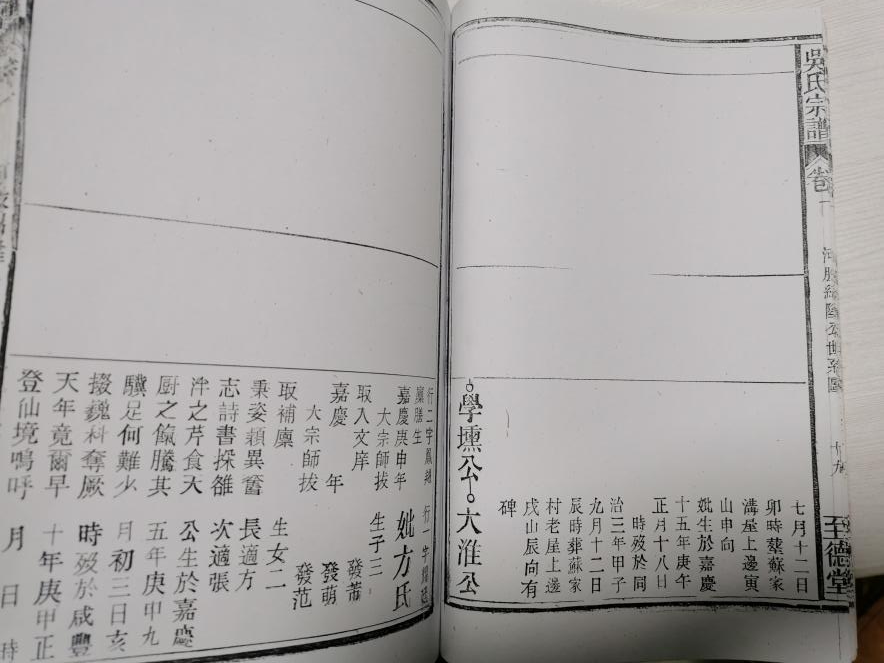 吳氏宗譜
卷一
十九
至德堂
七月十二日
卯時塟蘇家
溝屋上邊寅
山申向
妣生於嘉慶
十五年庚午
正月十八日
時殁於同
治三年甲子
九月十二日
辰時葬蘇家
村老屋上邊
戌山辰向有
碑
學壎公
大淮公
行二字鳳
廩膳生
嘉慶庚申年
大宗師拔
取入文庠
嘉慶 年
大宗師拔
取補廩
秉姿穎異奮
志詩書探雒
泮之芹食天
厨之餼騰其
驥足何難少
掇巍科奪厥
天年竟爾早
登仙境嗚呼
行一字
妣方氏
生子三
發
發萌
發范
生女二
長適方
次適張
公生於嘉慶
五年庚甲九
月初三日亥
時殁於咸豐
十年庚甲正
月 日 時